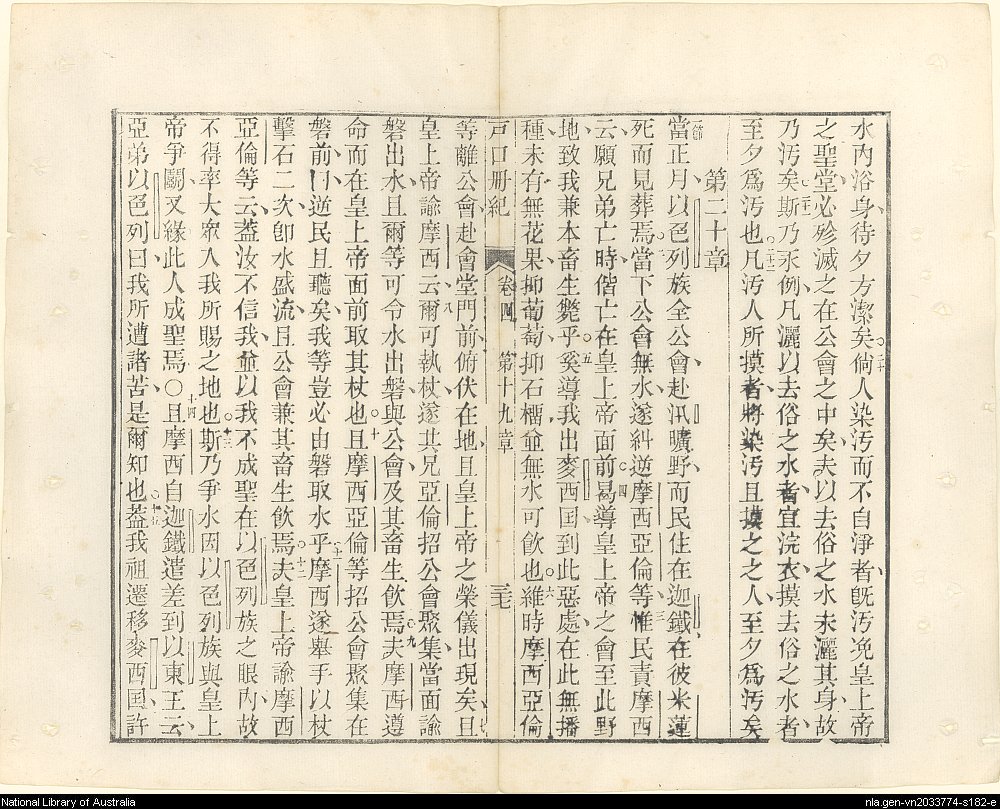 水內浴身待夕方潔矣○二十倘人染污而不自淨者旣污浼皇上帝
之聖堂必殄滅之在公會之中矣夫以去俗之水未灑其身故
乃污矣○二一斯乃永例凡灑以去俗之水者宜浣衣摸去俗之水者
至夕爲污也○二二凡污人所摸者將染污且摸之之人至夕爲污矣
第二十章
當正月以色列族全公會赴汛曠野而民住在迦鐵在彼米蓮
死而見葬焉○二當下公會無水遂糾逆摩西亞倫等○三惟民責摩西
云願兄弟亡時偕亡在皇上帝面前○四曷導皇上帝之會至此野
地致我兼本畜生斃乎○五奚導我出麥西国到此惡處在此無播
種未有無花果抑萄萄抑石榴並無水可飮也○六維時摩西亞倫
戸口冊紀 卷四 第十九章 三七
等離公會赴會堂門前俯伏在地且皇上帝之榮儀出現矣且
皇上帝諭摩西云○八爾可執杖遂共兄亞倫招公會聚集當面諭
磐出水且爾等可令水出磐與公會及其畜生飮焉○九夫摩西遵
命而在皇上帝面前取其杖也○十且摩西亞倫等招公會聚集在
磐前曰逆民且聽矣我等豈必由磐取水乎○十一摩西遂舉手以杖
擊石二次卽水盛流且公會兼其畜生飮焉○十二夫皇上帝諭摩西
亞倫等云葢汝不信我並以我不成聖在以色列族之眼內故
不得率大衆入我所賜之地也○十三斯乃爭水因以色列族與皇上
帝爭鬭又緣此人成聖焉○十四且摩西自迦鐵遣差到以東王云
亞弟以色列曰我所遭諸苦是爾知也○十五葢我祖遷移麥西国許
National Library of Australia
nla.gen-vn2033774-s182-e